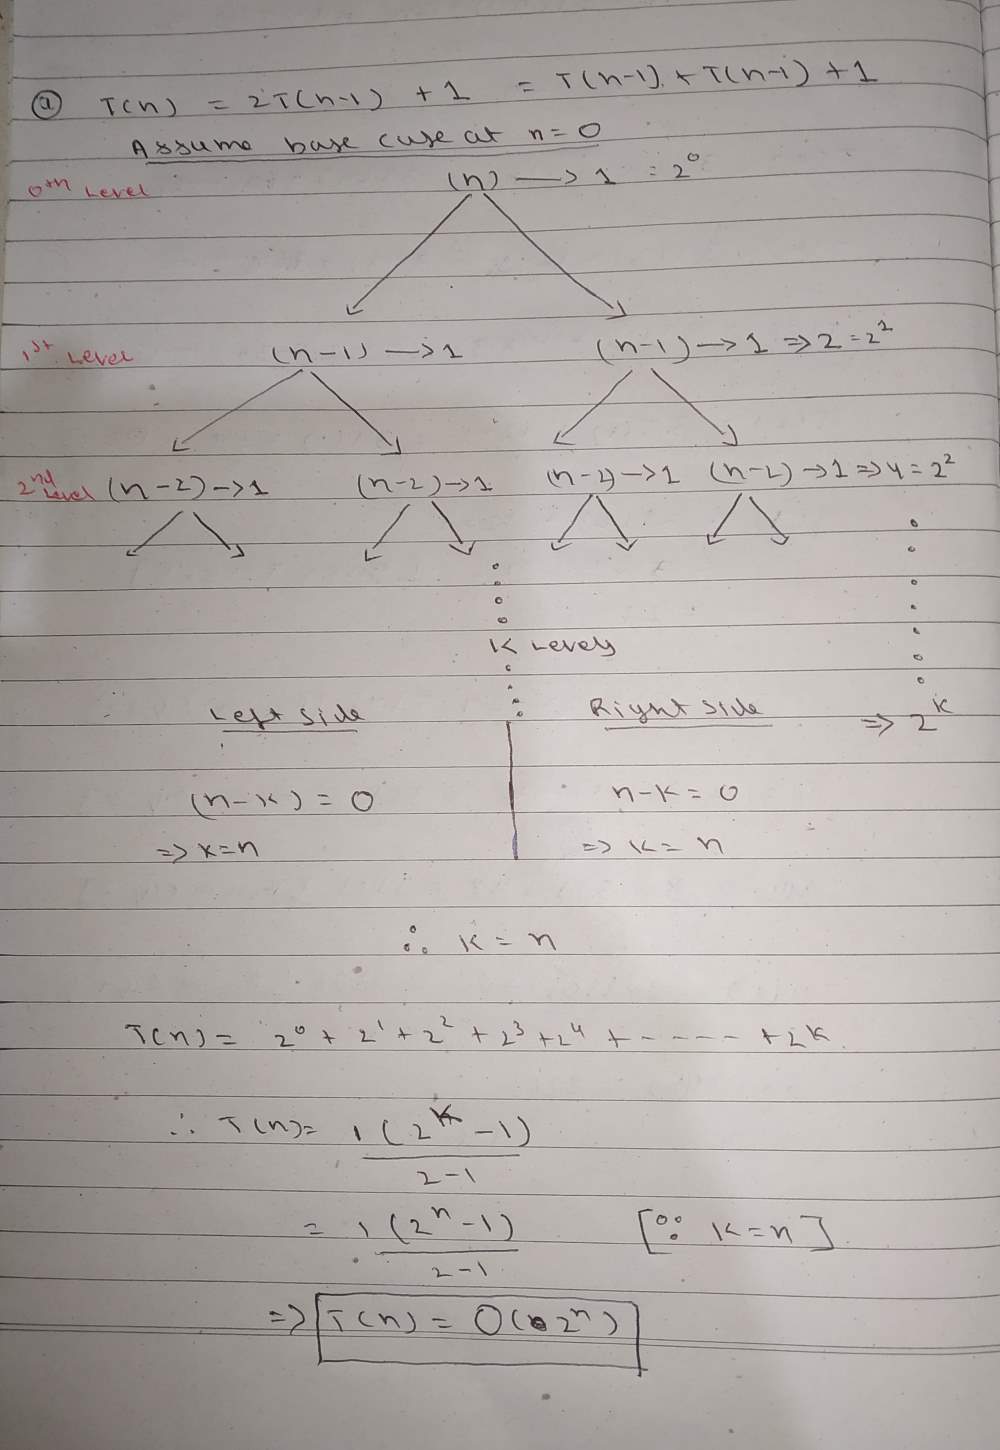 ⓐ T(n) = 2T(n-1) + 1 = T(n-1) + T(n-1) + 1
Assume base case at n=0
0th Level (n) → 1 = 2⁰
1st Level (n-1) → 1 (n-1) → 1 ⇒ 2 = 2¹
2nd Level (n-2) → 1 (n-2) → 1 (n-2) → 1 (n-2) → 1 ⇒ 4 = 2²
K Levels
Left side Right side ⇒ 2ᵏ
(n-k) = 0 n-k = 0
⇒ k=n ⇒ k = n
∴ k = n
T(n) = 2⁰ + 2¹ + 2² + 2³ + 2⁴ + ----- + 2ᵏ
∴ T(n) = 1 (2ᵏ - 1)
2-1
= 1 (2ⁿ - 1) [∵ k=n]
2-1
⇒ T(n) = O(2ⁿ)